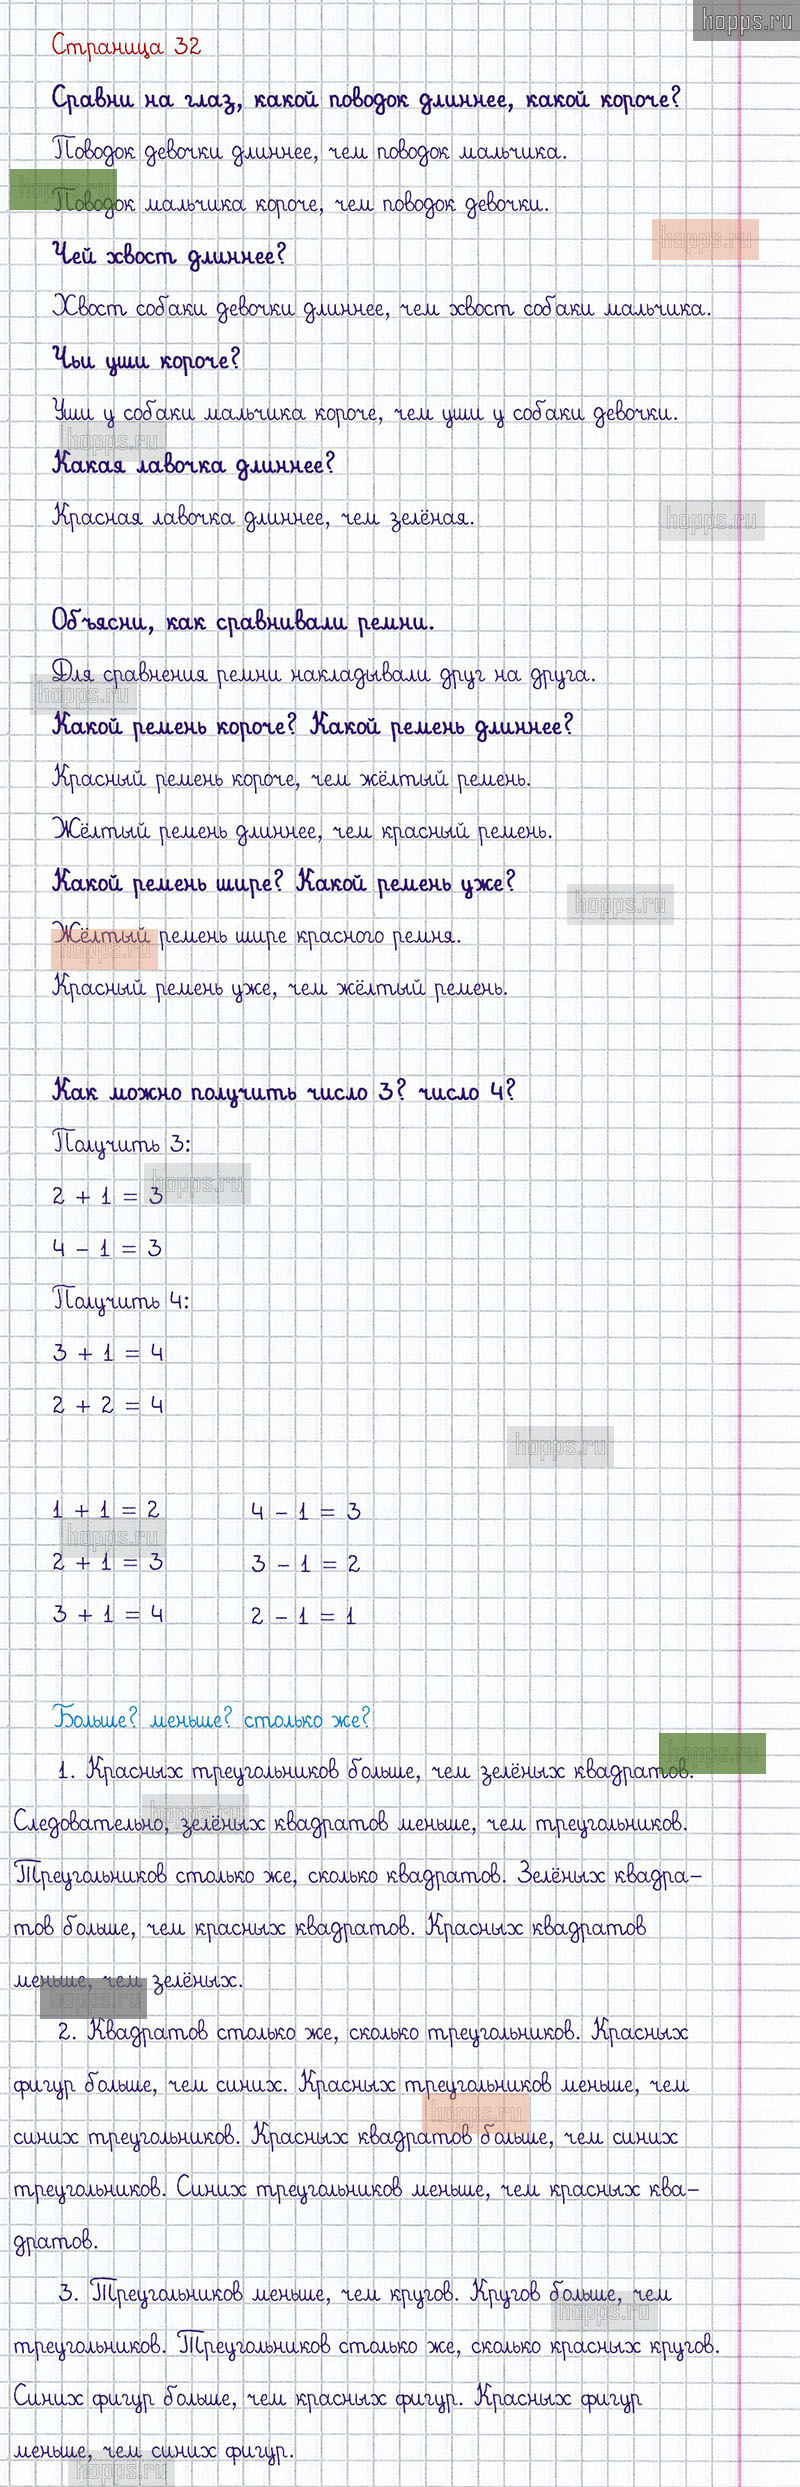 hopps.ru
Страница 32
Сравни на глаз, какой поводок длиннее, какой короче?
Поводок девочки длиннее, чем поводок мальчика.
hopps.ru
Поводок мальчика короче, чем поводок девочки.
hopps.ru
Чей хвост длиннее?
Хвост собаки девочки длиннее, чем хвост собаки мальчика.
Чьи уши короче?
Уши у собаки мальчика короче, чем уши у собаки девочки.
hopps.ru
Какая лавочка длиннее?
Красная лавочка длиннее, чем зелёная.
hopps.ru
Объясни, как сравнивали ремни.
Для сравнения ремни накладывали друг на друга.
hopps.ru
Какой ремень короче? Какой ремень длиннее?
Красный ремень короче, чем жёлтый ремень.
Жёлтый ремень длиннее, чем красный ремень.
Какой ремень шире? Какой ремень уже?
hopps.ru
Жёлтый ремень шире красного ремня.
hopps.ru
Красный ремень уже, чем жёлтый ремень.
Как можно получить число 3? число 4?
Получить 3:
hopps.ru
2 + 1 = 3
4 - 1 = 3
Получить 4:
3 + 1 = 4
2 + 2 = 4
hopps.ru
1 + 1 = 2 4 - 1 = 3
hopps.ru
2 + 1 = 3 3 - 1 = 2
3 + 1 = 4 2 - 1 = 1
Больше? меньше? столько же?
hopps.ru
1. Красных треугольников больше, чем зелёных квадратов.
hopps.ru
Следовательно, зелёных квадратов меньше, чем треугольников.
Треугольников столько же, сколько квадратов. Зелёных квадра-
тов больше, чем красных квадратов. Красных квадратов
меньше, чем зелёных.
hopps.ru
2. Квадратов столько же, сколько треугольников. Красных
фигур больше, чем синих. Красных треугольников меньше, чем
hopps.ru
синих треугольников. Красных квадратов больше, чем синих
треугольников. Синих треугольников меньше, чем красных ква-
дратов.
3. Треугольников меньше, чем кругов. Кругов больше, чем
hopps.ru
треугольников. Треугольников столько же, сколько красных кругов.
Синих фигур больше, чем красных фигур. Красных фигур
меньше, чем синих фигур.
hopps.ru